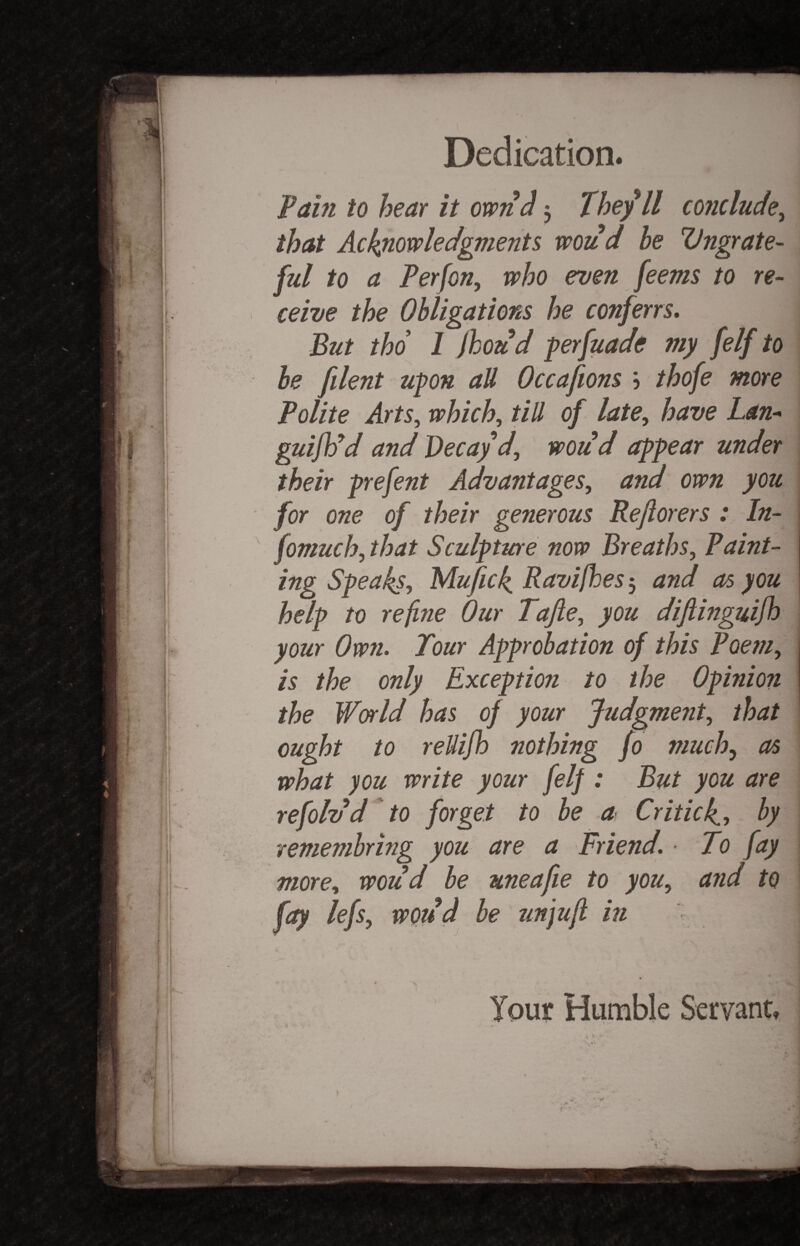 Dedication.
Pain to hear it own'd; They'll conclude,
that Acknowledgments wou'd be Ungrate-
ful to a Perſon, who even ſeems to re-
ceive the Obligations he conferrs.
But tho' I ſhou'd perſuade my ſelf to
be ſilent upon all Occaſions; thoſe more
Polite Arts, which, till of late, have Lan-
guiſh'd and Decay'd, wou'd appear under
their preſent Advantages, and own you
for one of their generous Reſtorers: In-
ſomuch, that Sculpture now Breaths, Paint-
ing Speaks, Muſick Raviſhes; and as you
help to refine Our Taſte, you diſtinguiſh
your Own. Your Approbation of this Poem,
is the only Exception to the Opinion
the World has of your Judgment, that
ought to relliſh nothing ſo much, as
what you write your ſelf: But you are
reſolv'd to forget to be a Critick, by
remembring you are a Friend. To ſay
more, wou'd be uneaſie to you, and to
ſay leſs, wou'd be unjuſt in
Your Humble Servant,